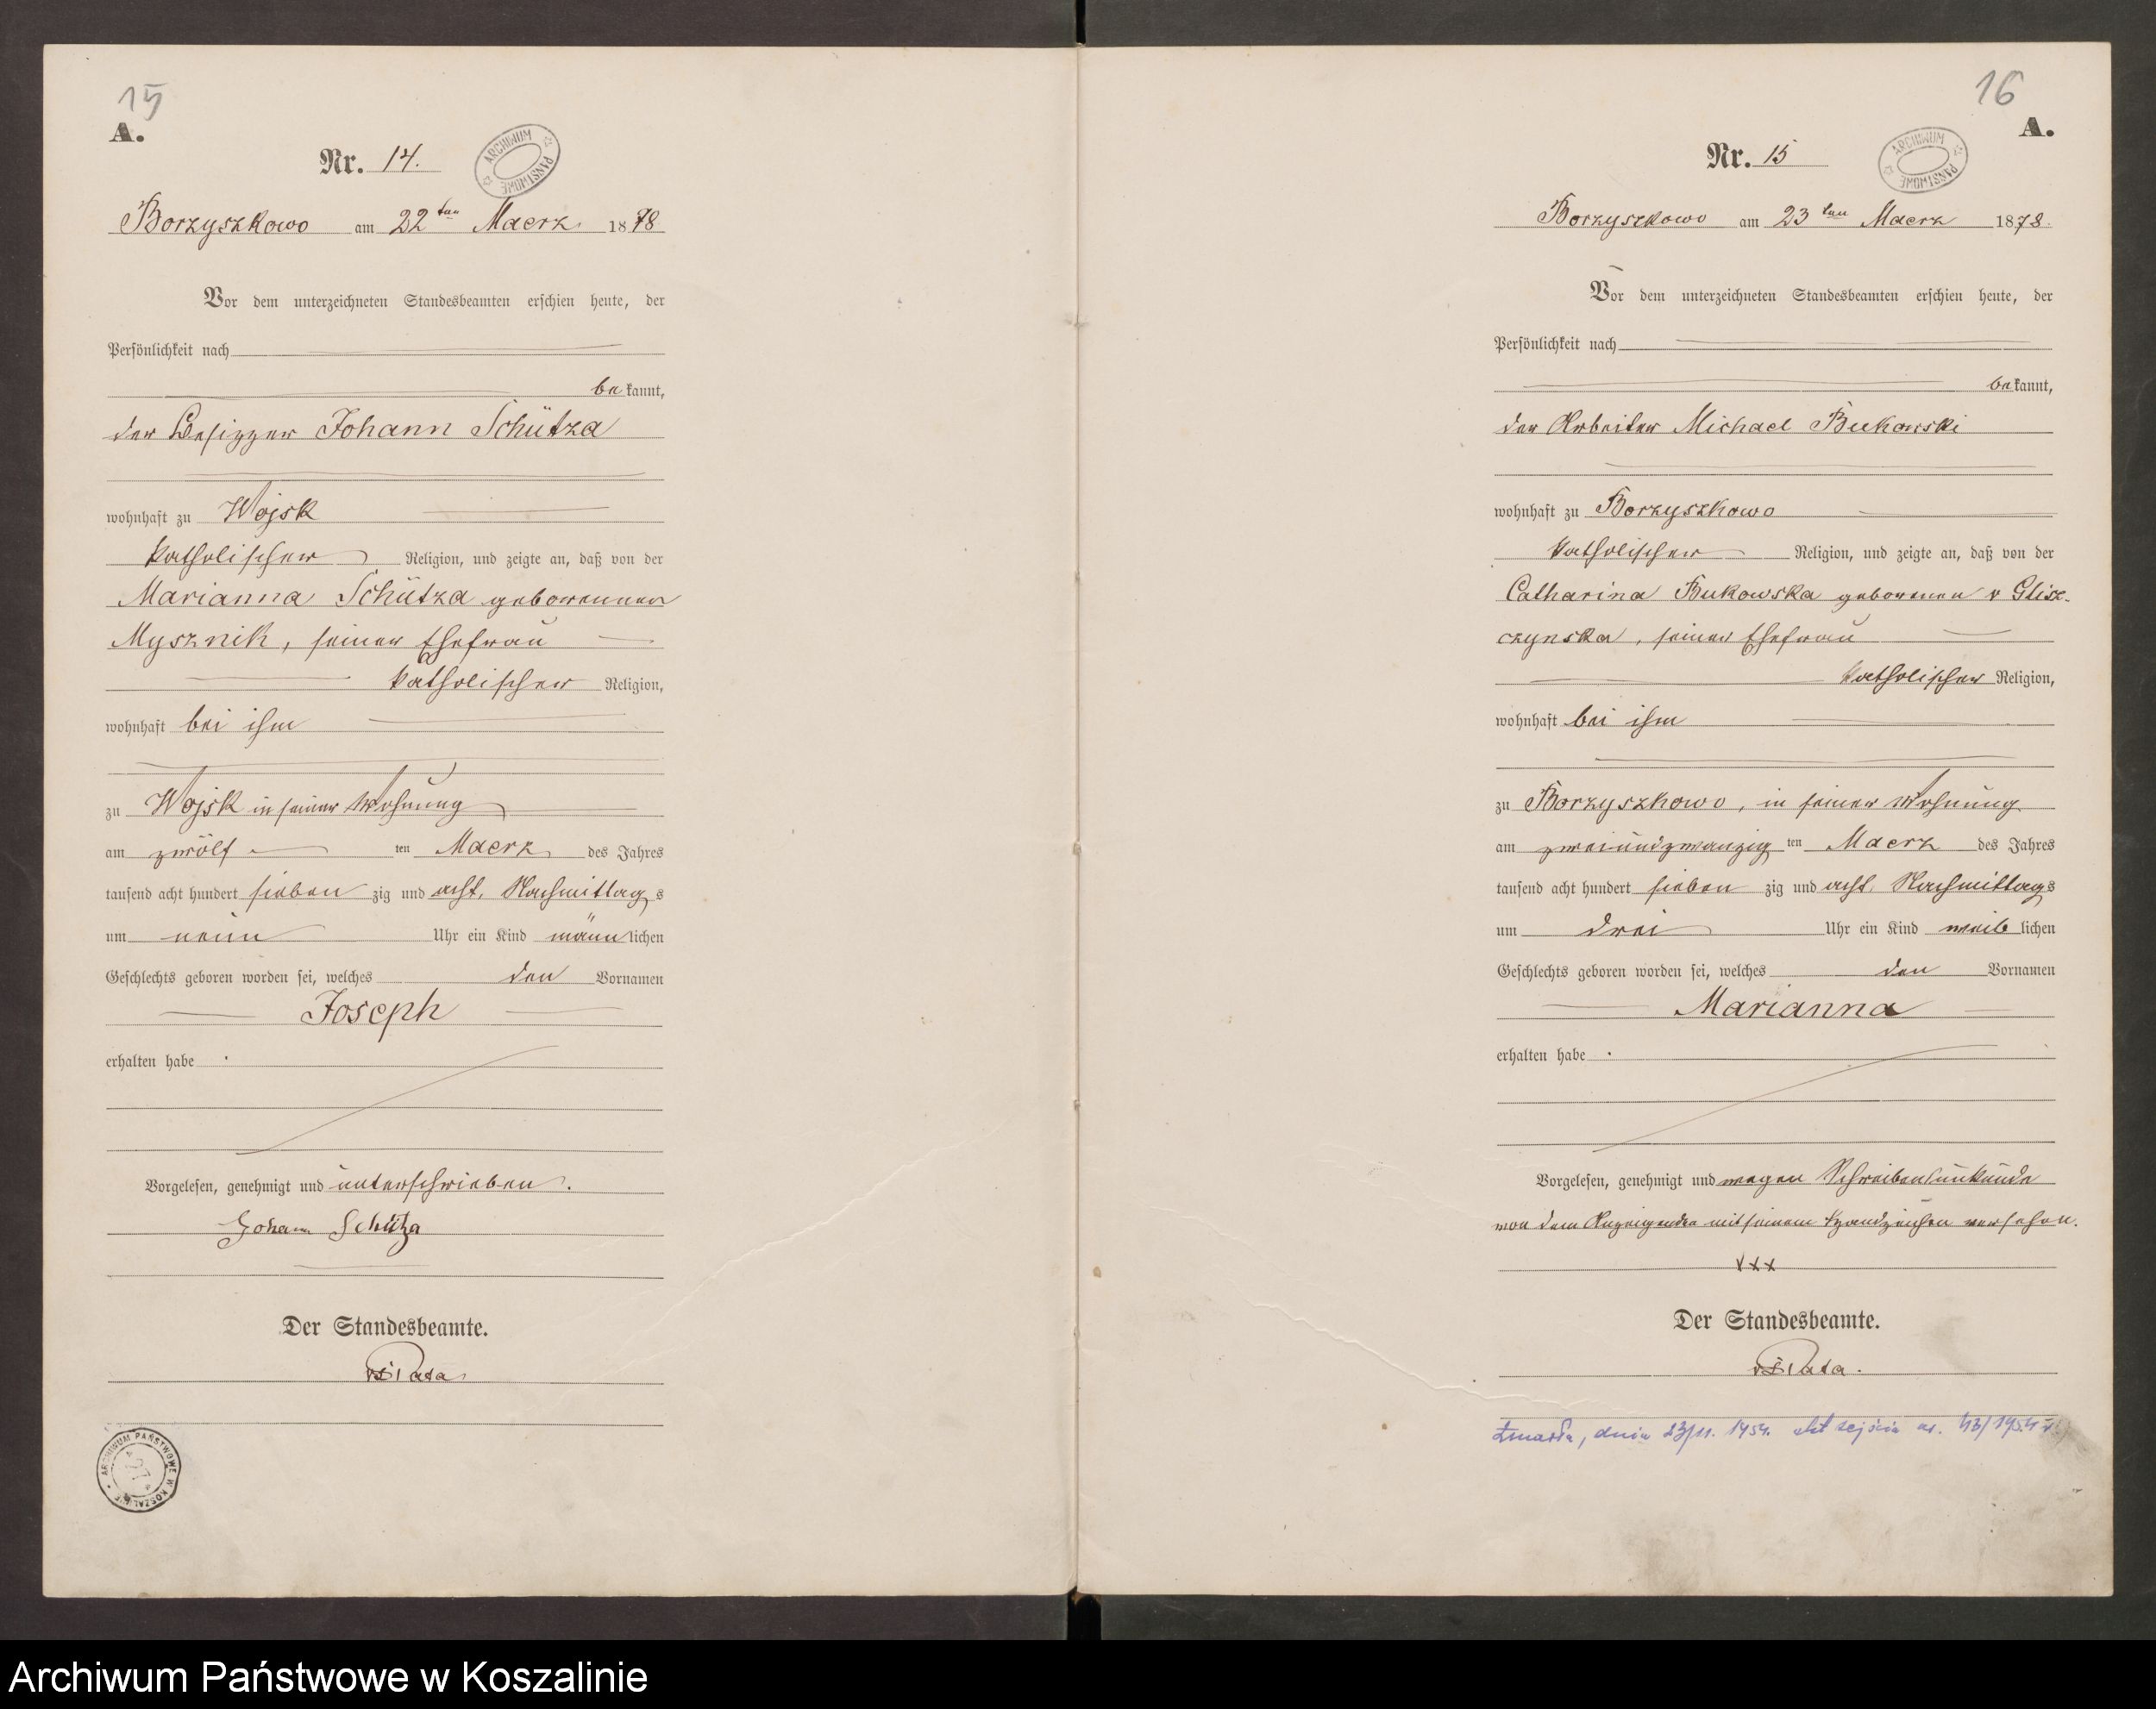 15
A.
Nr. 14.
ARCHIWUM PAŃSTWOWE
Borzyszkowo am 22ten Maerz 1878
Vor dem unterzeichneten Standesbeamten erschien heute, der
Persönlichkeit nach
bekannt,
der Besitzer Johann Schütza
wohnhaft zu Wojsk
katholischer Religion, und zeigte an, daß von der
Marianna Schütza geborennen
Mysznik, seiner Ehefrau
katholischer Religion,
wohnhaft bei ihm
zu Wojsk in seiner Wohnung
am zwölf ten Maerz des Jahres
tausend acht hundert sieben zig und acht, Nachmittags
um neun Uhr ein Kind männlichen
Geschlechts geboren worden sei, welches den Vornamen
Joseph
erhalten habe .
Vorgelesen, genehmigt und unterschrieben.
Johann Schütza
Der Standesbeamte.
ARCHIWUM PAŃSTWOWE W KOSZALINIE
27
16
A.
Nr. 15
ARCHIWUM PAŃSTWOWE
Borzyszkowo am 23ten Maerz 1878.
Vor dem unterzeichneten Standesbeamten erschien heute, der
Persönlichkeit nach
bekannt,
der Arbeiter Michael Bukowski
wohnhaft zu Borzyszkowo
katholischer Religion, und zeigte an, daß von der
Catharina Bukowska geborenen v Glisz-
czynska, seiner Ehefrau
katholischer Religion,
wohnhaft bei ihm
zu Borzyszkowo, in seiner Wohnung
am zweiundzwanzig ten Maerz des Jahres
tausend acht hundert sieben zig und acht, Nachmittags
um drei Uhr ein Kind weiblichen
Geschlechts geboren worden sei, welches den Vornamen
Marianna
erhalten habe .
Vorgelesen, genehmigt und wegen Schreibensunkunde
von dem Anzeigenden mit seinem Handzeichen versehen.
xxx
Der Standesbeamte.
Zmarła, dnia 23/11. 1954. akt zejścia nr. 43/1954 r.
Archiwum Państwowe w Koszalinie